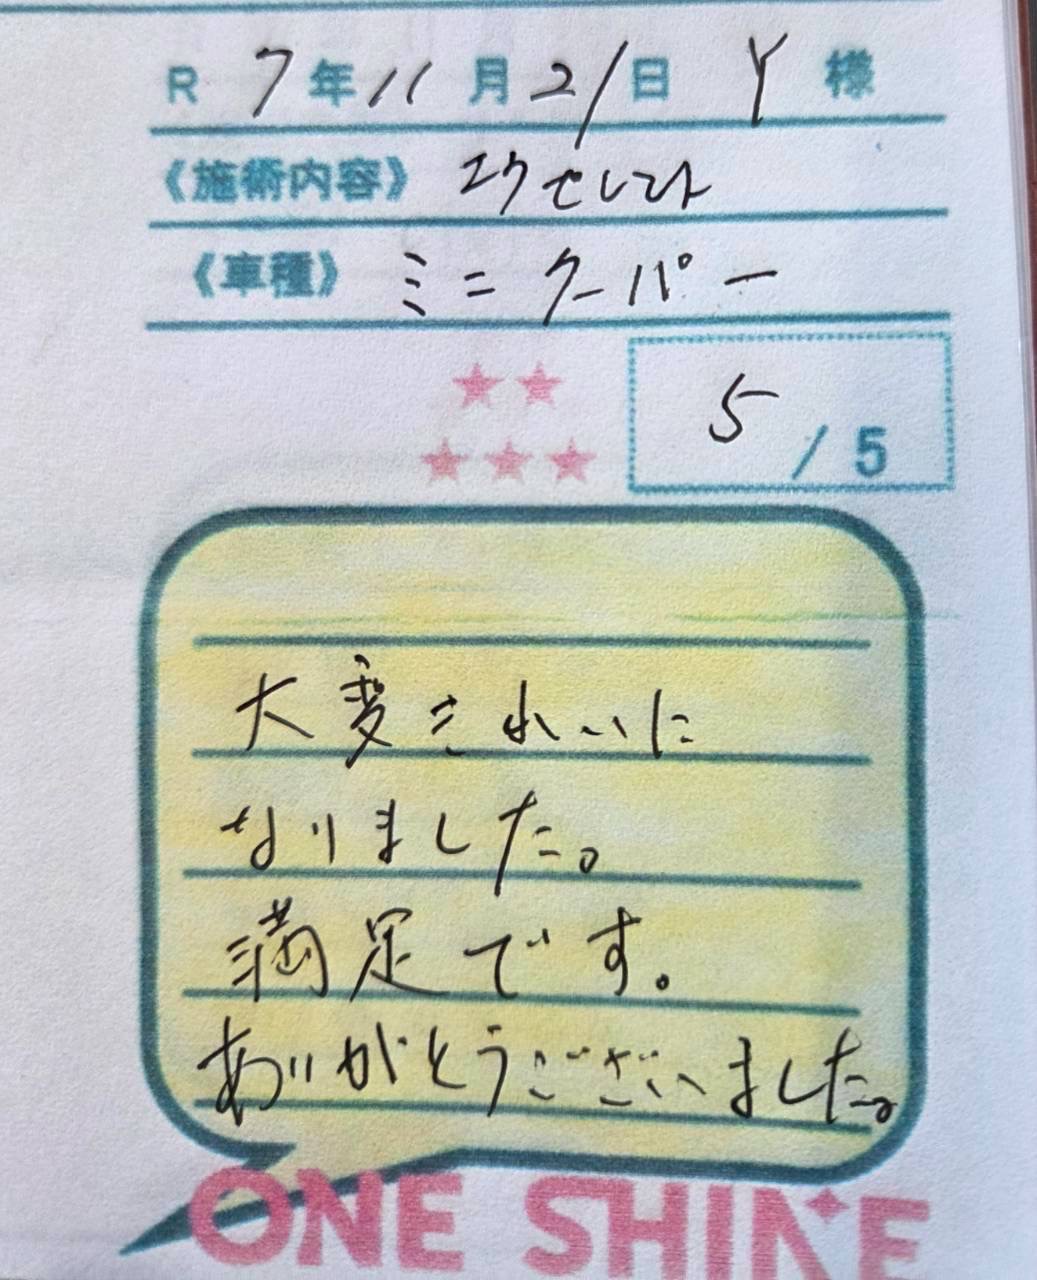 R 7年11月21日 Y 様
《施術内容》 エクセレント
《車種》 ミニクーパー
5 / 5
大変きれいに
なりました。
満足です。
ありがとうございました。
ONE SHINE